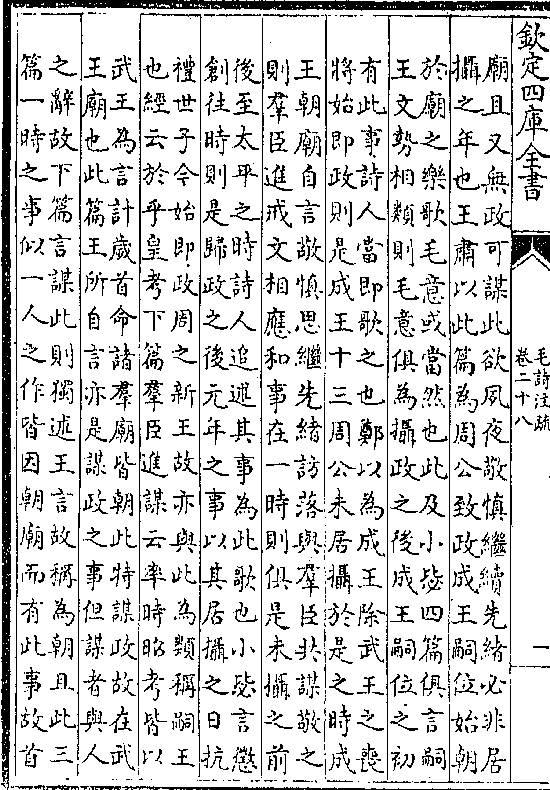 欽定四庫全書
毛詩注疏
卷二十八
一
廟且又無政可謀此欲夙夜敬慎繼續先緒必非居
攝之年也王肅以此篇為周公致政成王嗣位始朝
於廟之樂歌毛意或當然也此及小毖四篇俱言嗣
王文勢相類則毛意俱為攝政之後成王嗣位之初
有此事詩人當即歌之也鄭以為成王除武王之喪
將始即政則是成王十三周公未居攝於是之時成
王朝廟自言敬慎思繼先緒訪落與羣臣共謀敬之
則羣臣進戒文相應和事在一時則俱是未攝之前
後至太平之時詩人追述其事為此歌也小毖言懲
創往時則是歸政之後元年之事以其居攝之日抗
禮世子今始即政周之新王故亦與此為類稱嗣王
也經云於乎皇考下篇羣臣進謀云率時昭考皆以
武王為言計歲首命諸羣廟皆朝此特謀政故在武
王廟也此篇王所自言亦是謀政之事但謀者與人
之辭故下篇言謀此則獨述王言故稱為朝且此三
篇一時之事似一人之作皆因朝廟而有此事故首